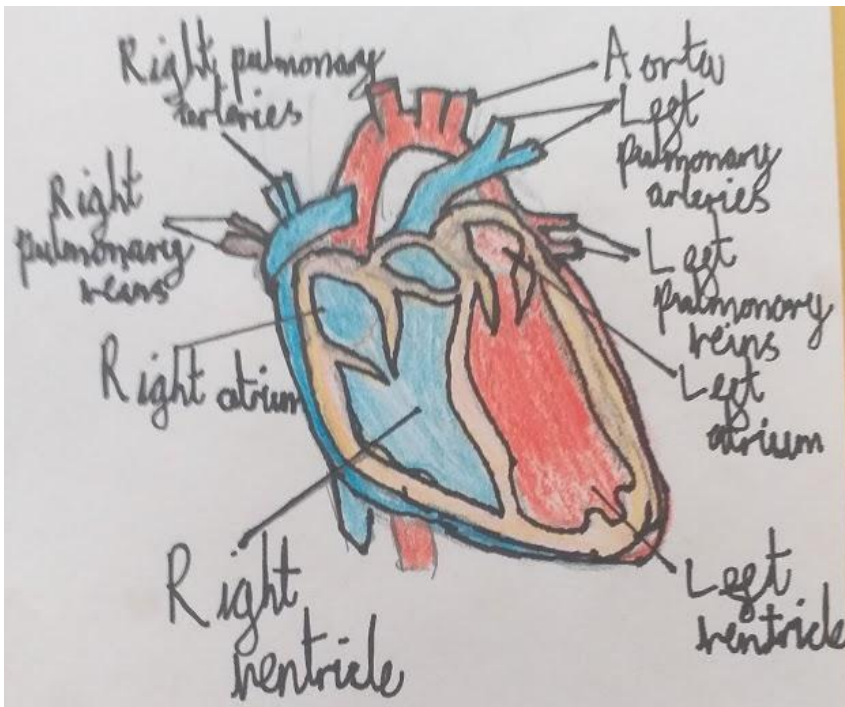 Right pulmonary
arteries
Aorta
Left
pulmonary
arteries
Right
pulmonary
veins
Left
pulmonary
veins
Right atrium
Left
atrium
Right
ventricle
Left
ventricle